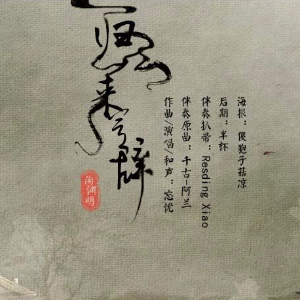 归去来兮辞
陶渊明
作曲/演唱/和声：忘忧
伴奏原曲：千古-阿兰
伴奏扒带：Resding Xiao
后期：半杯
海报：傻狍子菇凉